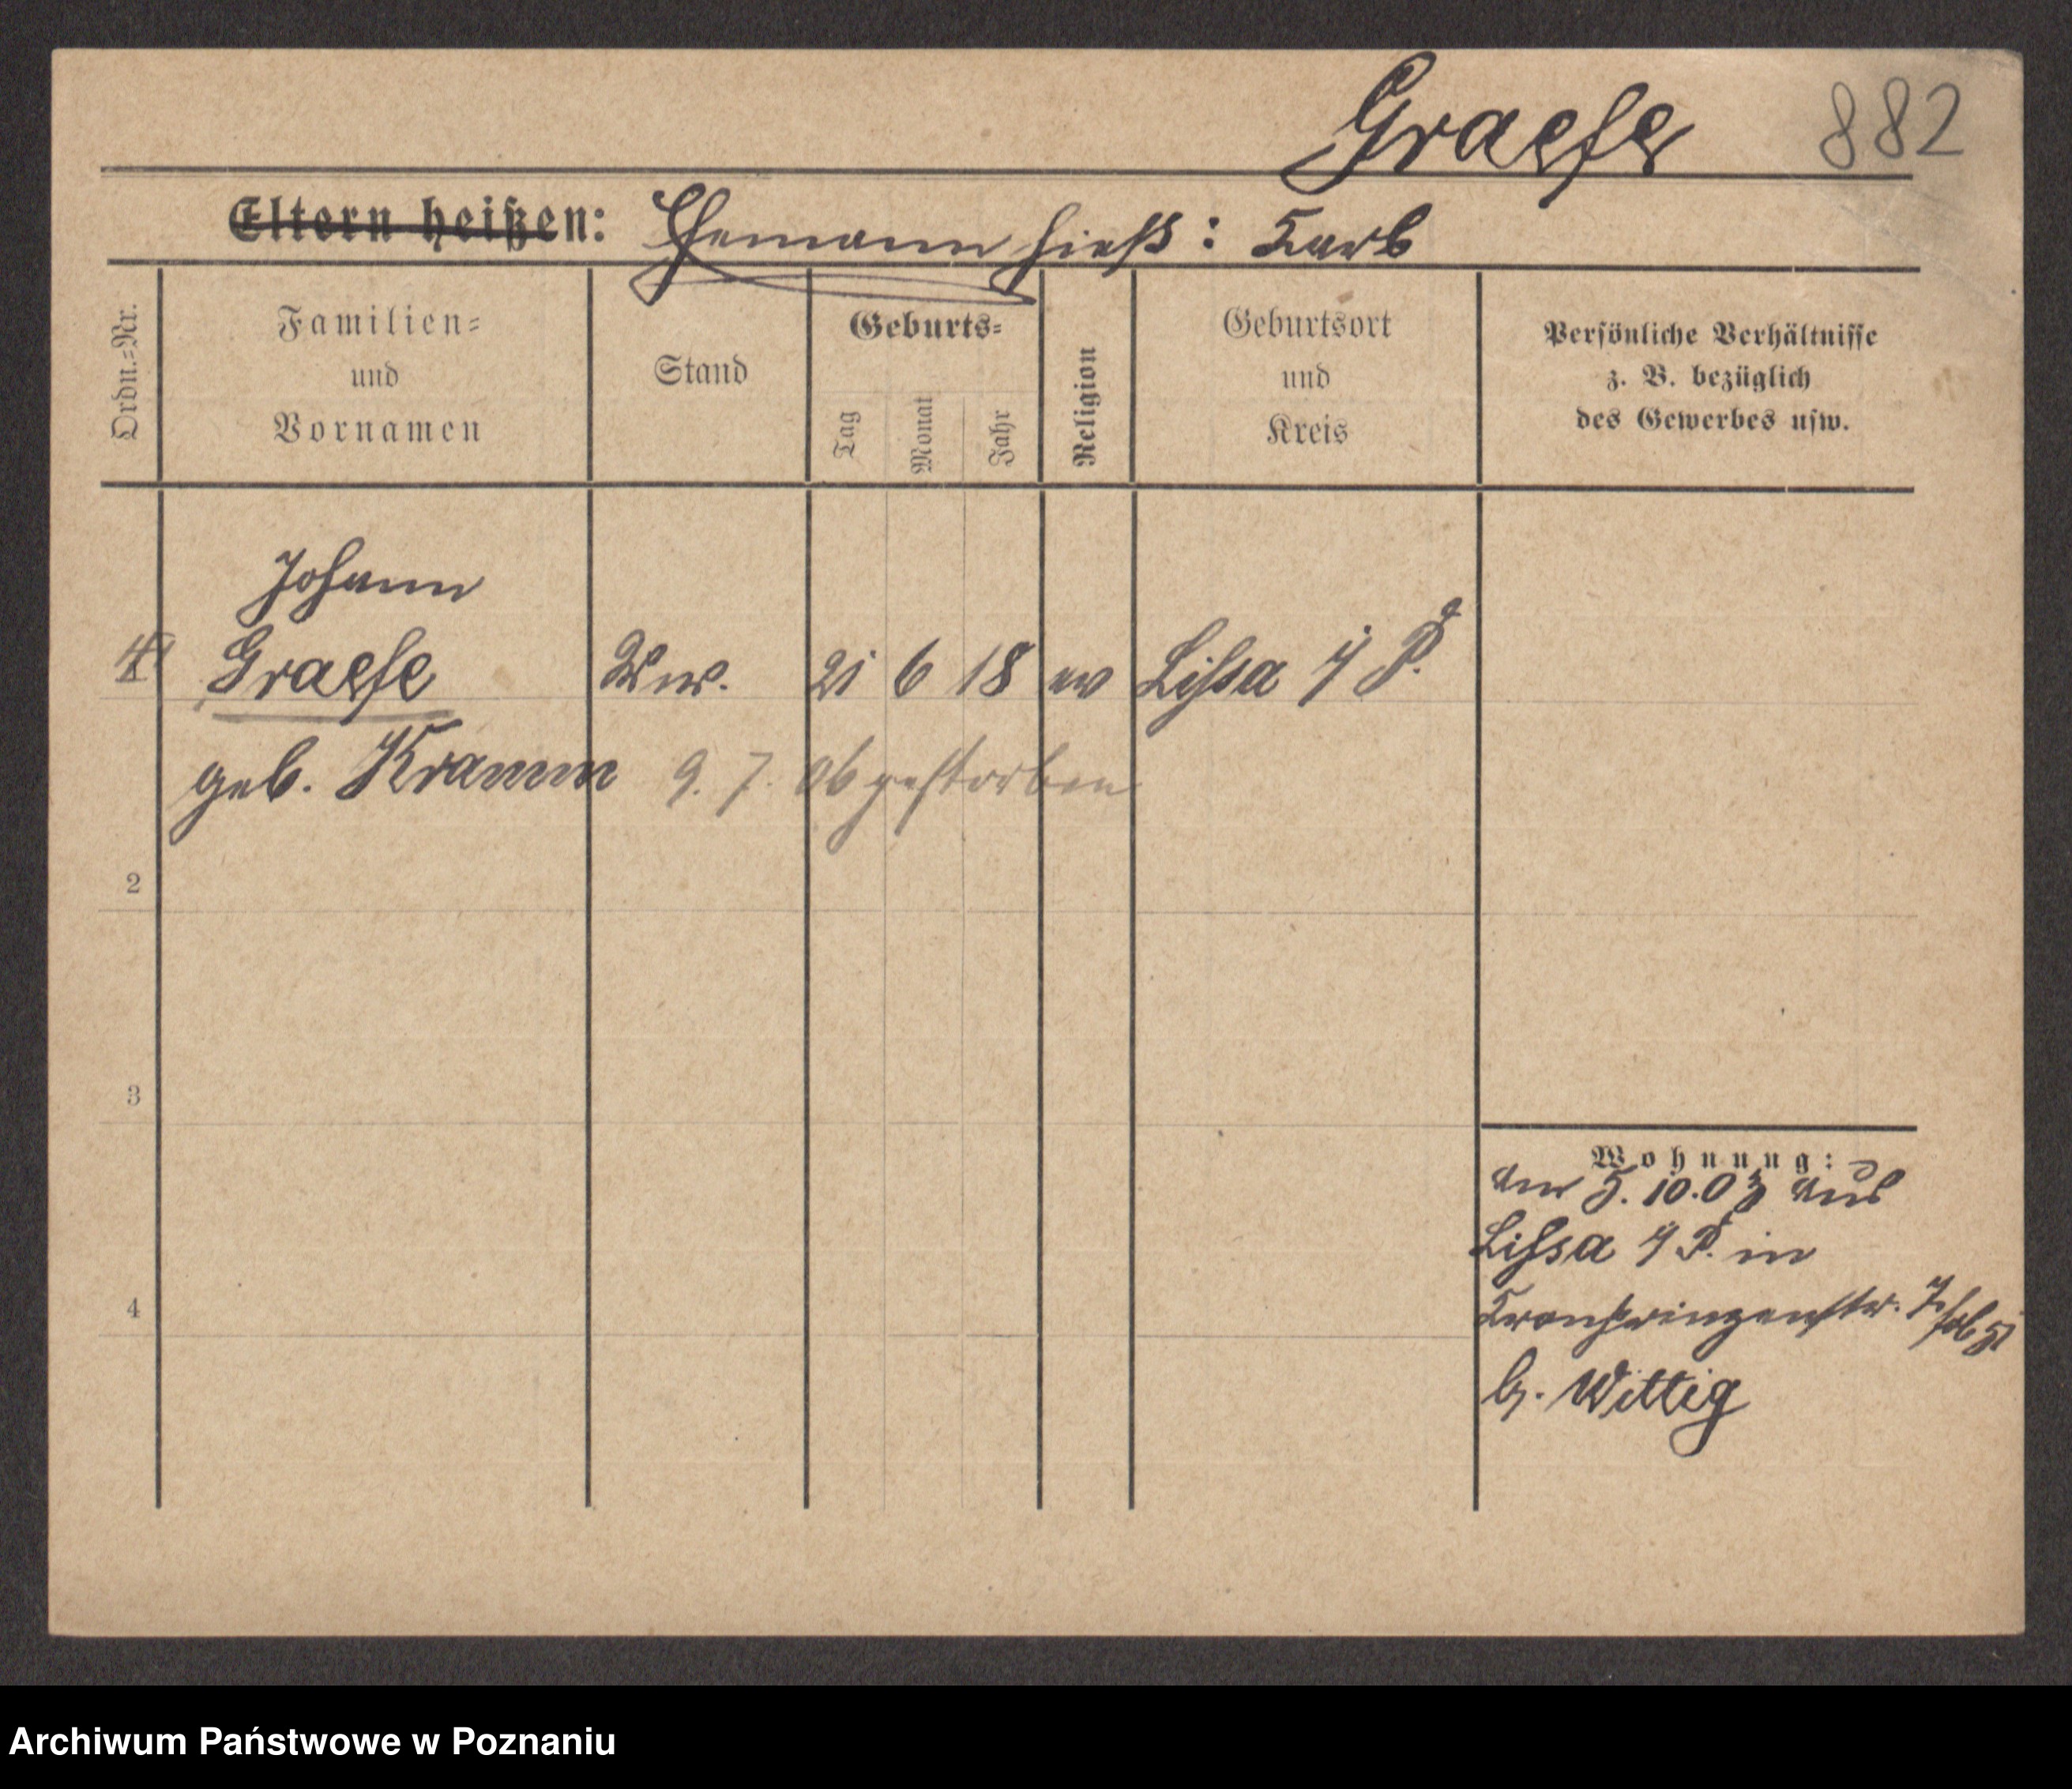 Graefe 882
Eltern heißen: Ehemann hieß: Karl
Ordn.=Nr.
Familien=
und
Vornamen
Stand
Geburts=
Tag
Monat
Jahr
Religion
Geburtsort
und
Kreis
Persönliche Verhältnisse
z. B. bezüglich
des Gewerbes usw.
Johann
1 Graefe Ww. 21 6 18 ev Lissa i/ P.
geb. Kramm 9. 7. 06 gestorben
2
3
4
Wohnung:
am 5.10.03 aus
Lissa i/ P. in
Kronprinzenstr.
b. Wittig
Archiwum Państwowe w Poznaniu